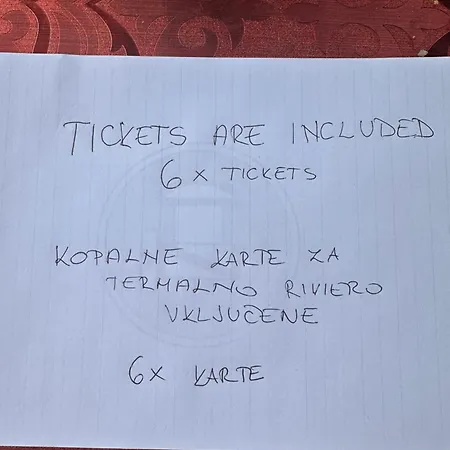 TICKETS ARE INCLUDED
6 x TICKETS
KOPALNE KARTE ZA
TERMALNO RIVIERO
VKLJUČENE
6x KARTE